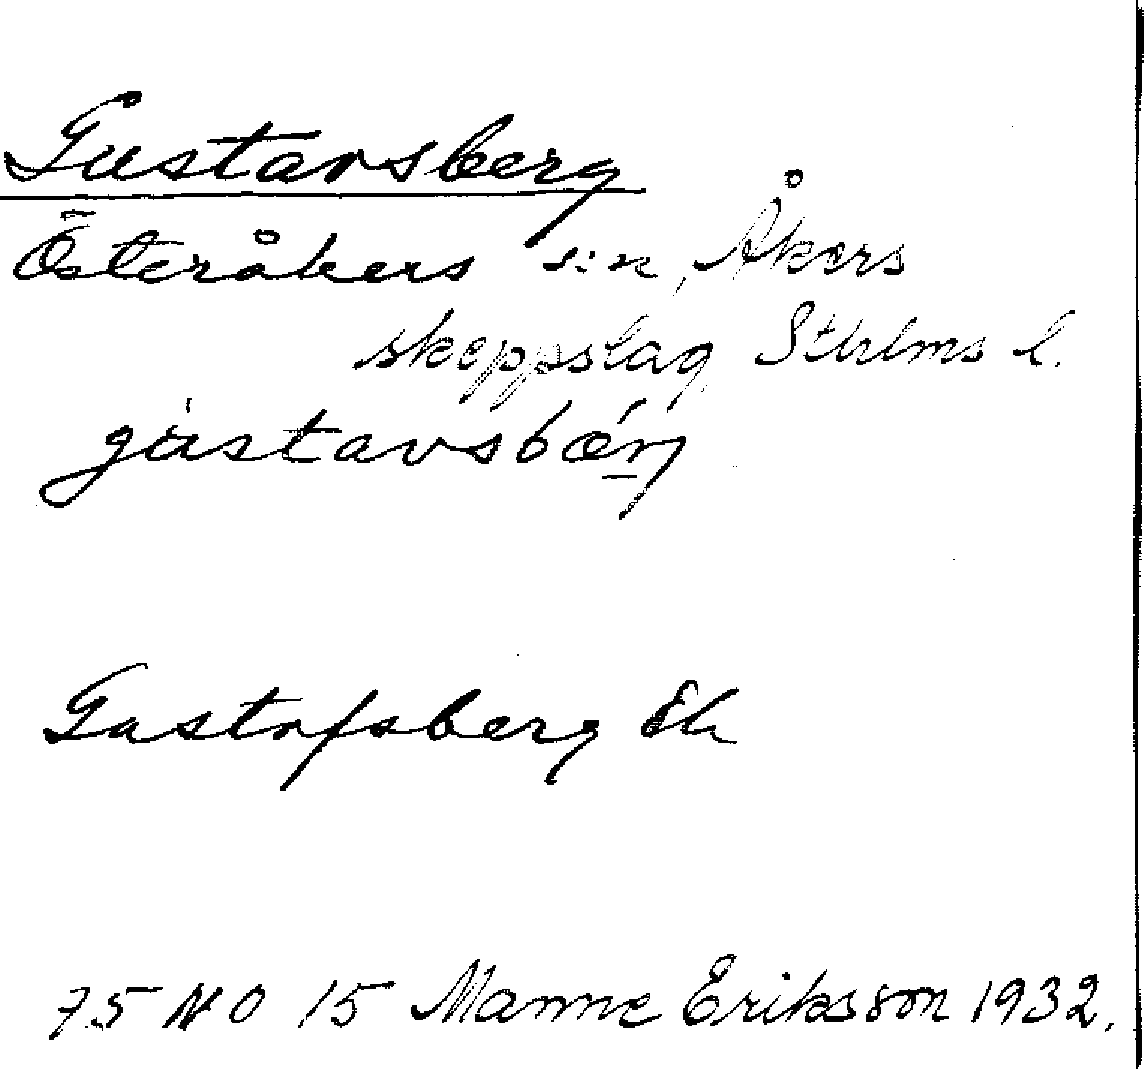 Gustavsberg
Österåkers s:n, Åkers
skeppslag, Sthlms l.
gùstavsbǽrj
Gustafsberg Ek
75 NO 15 Manne Eriksson 1932.